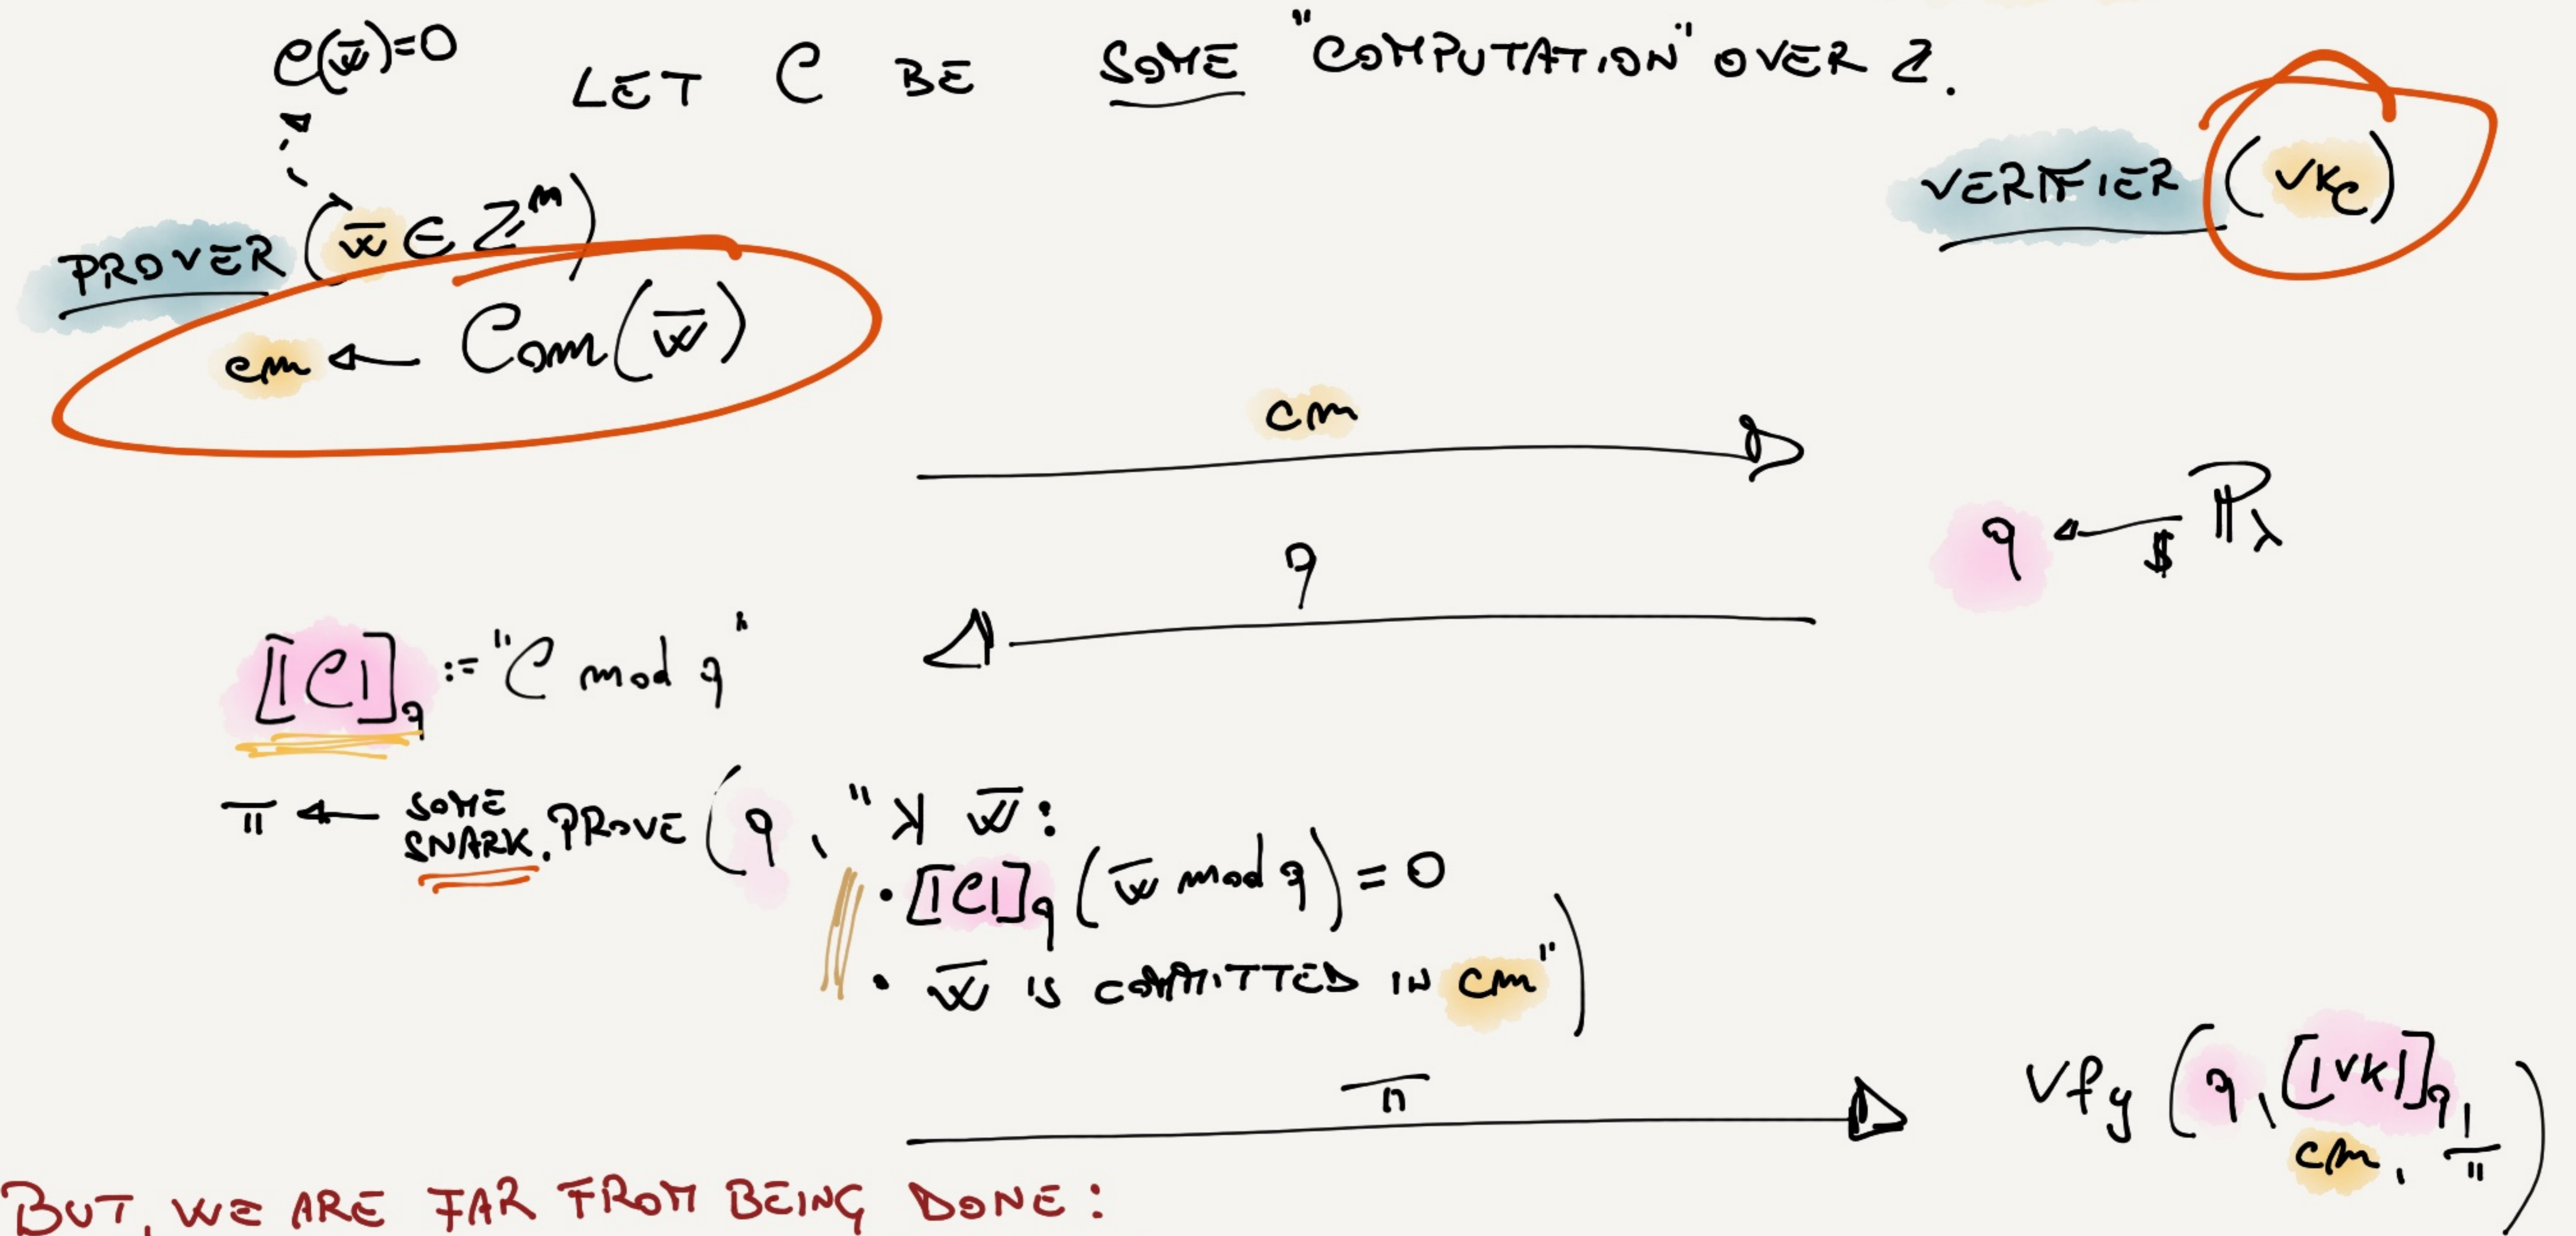 C(w̅)=0
LET C BE SOME "COMPUTATION" OVER Z.
VERIFIER (vk_C)
PROVER (w̅ ∈ Z^m)
cm ← Com(w̅)
cm
q ←$ ℙ_λ
q
[|C|]_q := "C mod q"
π ← SOME SNARK.PROVE (q, "ʞ w̅:
• [|C|]_q (w̅ mod q) = 0
• w̅ IS COMMITTED IN cm")
π
Vfy (q, [|vk|]_q, cm, π)
BUT, WE ARE FAR FROM BEING DONE: